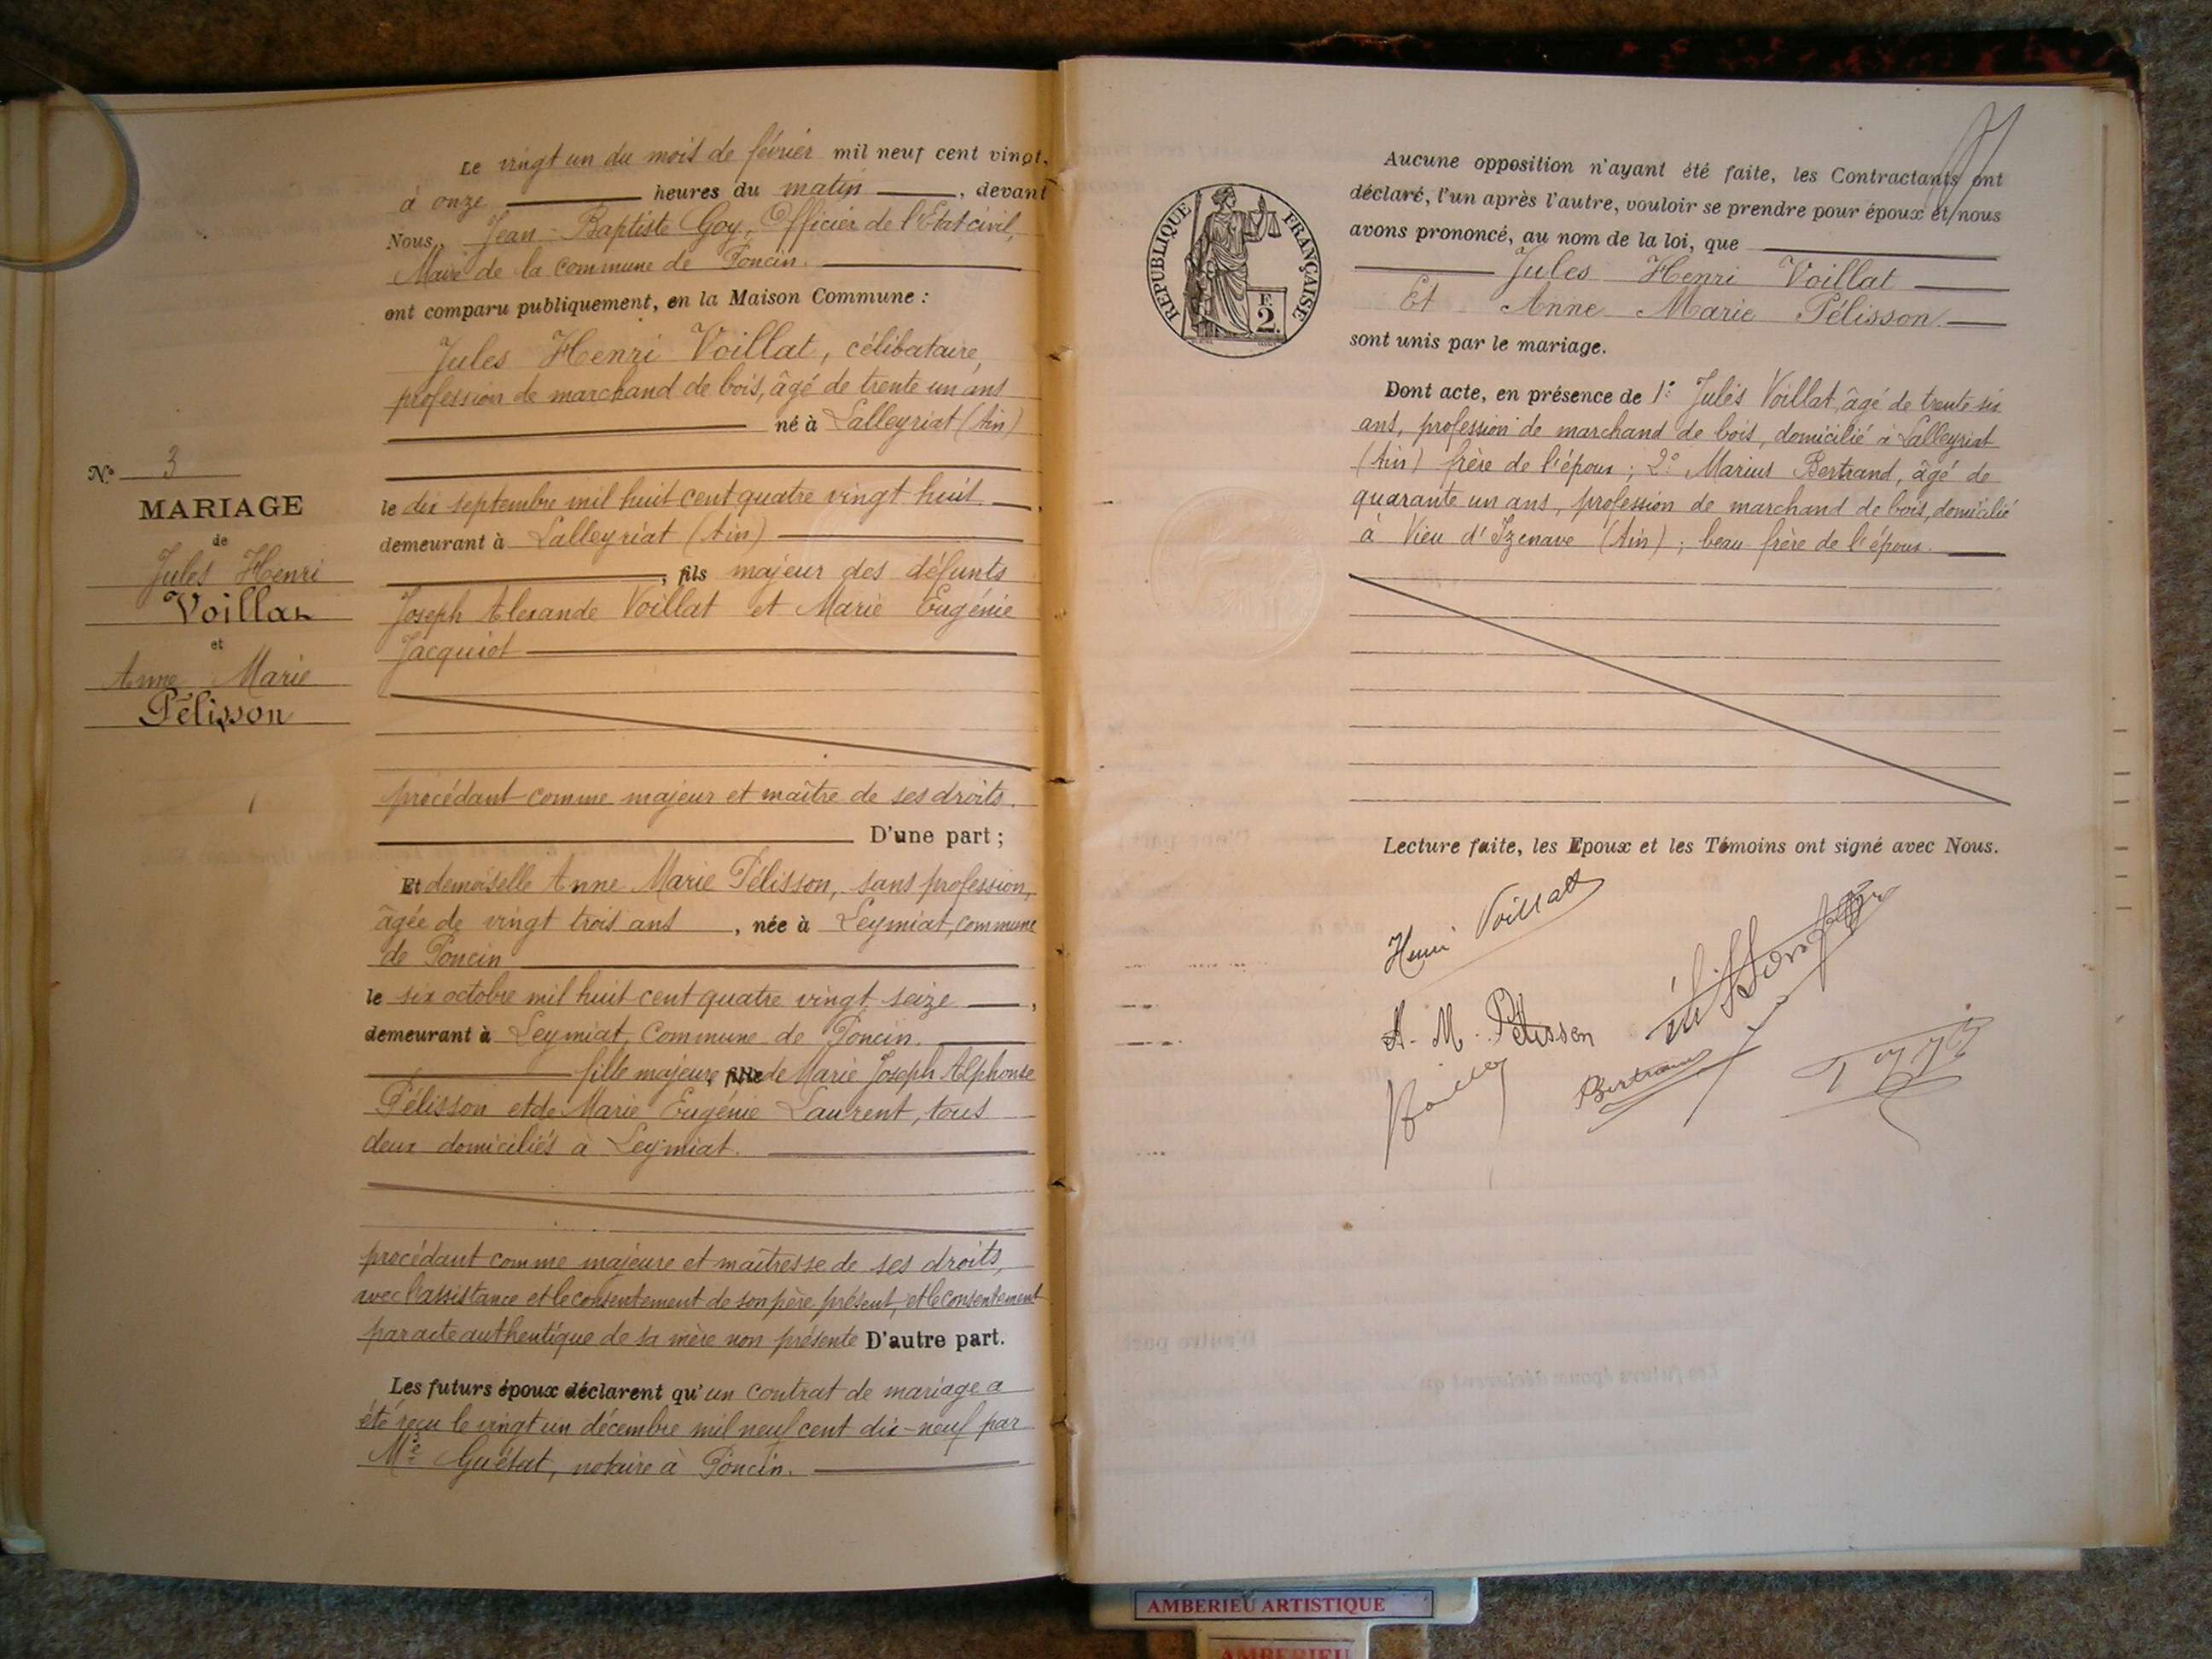 Le vingt un du mois de février mil neuf cent vingt,
à onze heures du matin, devant
Nous, Jean-Baptiste Goy, Officier de l'Etat civil,
Maire de la commune de Poncin.
ont comparu publiquement, en la Maison Commune :
Jules Henri Voillat, célibataire,
profession de marchand de bois, âgé de trente un ans
né à Lalleyriat (Ain)
le dix septembre mil huit cent quatre vingt huit,
demeurant à Lalleyriat (Ain)
, fils majeur des défunts
Joseph Alexande Voillat et Marie Eugénie
Jacquiot
procédant comme majeur et maître de ses droits.
D'une part ;
Et demoiselle Anne Marie Pélisson, sans profession,
âgée de vingt trois ans, née à Leymiat, commune
de Poncin
le six octobre mil huit cent quatre vingt seize,
demeurant à Leymiat, Commune de Poncin.
fille majeure, fille de Marie Joseph Alphonse
Pélisson et de Marie Eugénie Laurent, tous
deux domiciliés à Leymiat.
procédant comme majeure et maîtresse de ses droits,
avec l'assistance et le consentement de son père présent, et le consentement
par acte authentique de sa mère non présente D'autre part.
Les futurs époux déclarent qu'un contrat de mariage a
été reçu le vingt un décembre mil neuf cent dix-neuf par
Me Guétat, notaire à Poncin.
N° 3
MARIAGE
de
Jules Henri
Voillat
et
Anne Marie
Pélisson
REPUBLIQUE FRANÇAISE
F.
2.
Aucune opposition n'ayant été faite, les Contractants ont
déclaré, l'un après l'autre, vouloir se prendre pour époux et nous
avons prononcé, au nom de la loi, que
Jules Henri Voillat
Et Anne Marie Pélisson.
sont unis par le mariage.
Dont acte, en présence de 1° Jules Voillat, âgé de trente six
ans, profession de marchand de bois, domicilié à Lalleyriat
(Ain) frère de l'époux ; 2° Marius Bertrand, âgé de
quarante un ans, profession de marchand de bois, domicilié
à Vieu d'Izenave (Ain) ; beau-frère de l'époux.
Lecture faite, les Epoux et les Témoins ont signé avec Nous.
Henri Voillat
A. M. Pélisson
Bertrand
AMBERIEU ARTISTIQUE
AMBERIEU